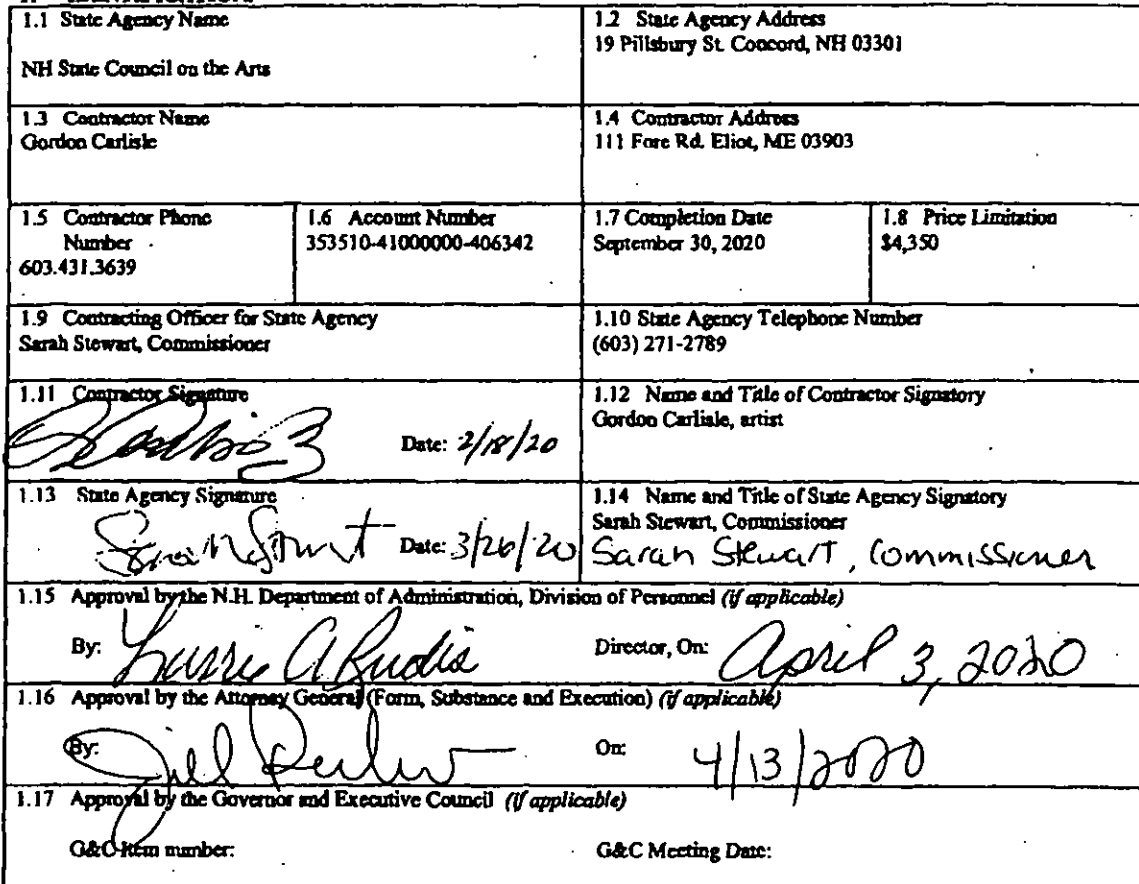 1.1 State Agency Name
NH State Council on the Arts
1.2 State Agency Address
19 Pillsbury St. Concord, NH 03301
1.3 Contractor Name
Gordon Carlisle
1.4 Contractor Address
111 Fore Rd. Eliot, ME 03903
1.5 Contractor Phone
Number
603.431.3639
1.6 Account Number
353510-41000000-406342
1.7 Completion Date
September 30, 2020
1.8 Price Limitation
$4,350
1.9 Contracting Officer for State Agency
Sarah Stewart, Commissioner
1.10 State Agency Telephone Number
(603) 271-2789
1.11 Contractor Signature
Date: 2/18/20
1.12 Name and Title of Contractor Signatory
Gordon Carlisle, artist
1.13 State Agency Signature
Date: 3/26/20
1.14 Name and Title of State Agency Signatory
Sarah Stewart, Commissioner
Sarah Stewart, Commissioner
1.15 Approval by the N.H. Department of Administration, Division of Personnel (if applicable)
By:
Director, On: April 3, 2020
1.16 Approval by the Attorney General (Form, Substance and Execution) (if applicable)
By:
On: 4/13/2020
1.17 Approval by the Governor and Executive Council (if applicable)
G&C Item number:
G&C Meeting Date: